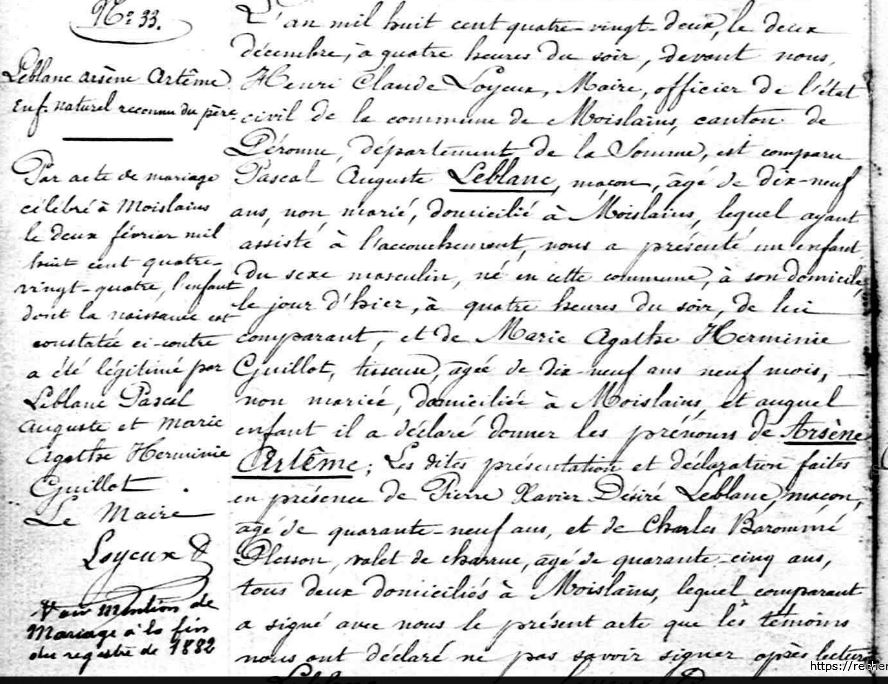 N° 33.
Leblanc Arsène Artême
Enf. naturel reconnu du père
Par acte de mariage
célébré à Moislains
le deux février mil
huit cent quatre-
vingt-quatre, l'enfant
dont la naissance est
constatée ci-contre
a été légitimé par
Leblanc Pascal
Auguste et Marie
Agathe Herminie
Guillot.
Le Maire
Loyeux
mention de
Mariage à la fin
du registre de 1882
L'an mil huit cent quatre-vingt-deux, le deux
décembre, à quatre heures du soir, devant nous,
Henri Claude Loyeux, Maire, officier de l'état
civil de la commune de Moislains, canton de
Péronne, département de la Somme, est comparu
Pascal Auguste Leblanc, maçon, âgé de dix-neuf
ans, non marié, domicilié à Moislains, lequel ayant
assisté à l'accouchement, nous a présenté un enfant
du sexe masculin, né en cette commune, à son domicile,
le jour d'hier, à quatre heures du soir, de lui
comparant, et de Marie Agathe Herminie
Guillot, tisseuse, âgée de dix-neuf ans neuf mois,
non mariée, domiciliée à Moislains, et auquel
enfant il a déclaré donner les prénoms de Arsène
Artême; Les dites présentation et déclaration faites
en présence de Pierre Xavier Désiré Leblanc, maçon,
âgé de quarante-neuf ans, et de Charles Barommé
Plesson, valet de charrue, âgé de quarante-cinq ans,
tous deux domiciliés à Moislains, lequel comparant
a signé avec nous le présent acte que les témoins
nous ont déclaré ne pas savoir signer après lecture
https://recher